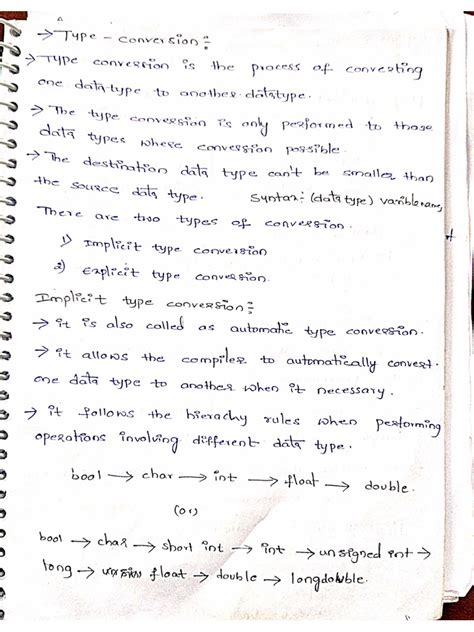 → Type - conversion :-
→ Type conversion is the process of converting
one data-type to another datatype.
→ The type conversion is only performed to those
data types where conversion possible.
→ The destination data type can't be smaller than
the source data type. Syntax:- (data type) varible name,
There are two types of conversion.
1) Implicit type conversion
2) Explicit type conversion.
Implicit type conversion :-
→ it is also called as automatic type conversion.
→ it allows the compiler to automatically convert.
one data type to another when it necessary.
→ it follows the hierachy rules when performing
operations involving different data type.
bool → char → int → float → double.
(or)
bool → char → short int → int → unsigned int →
long → float → double → longdouble.